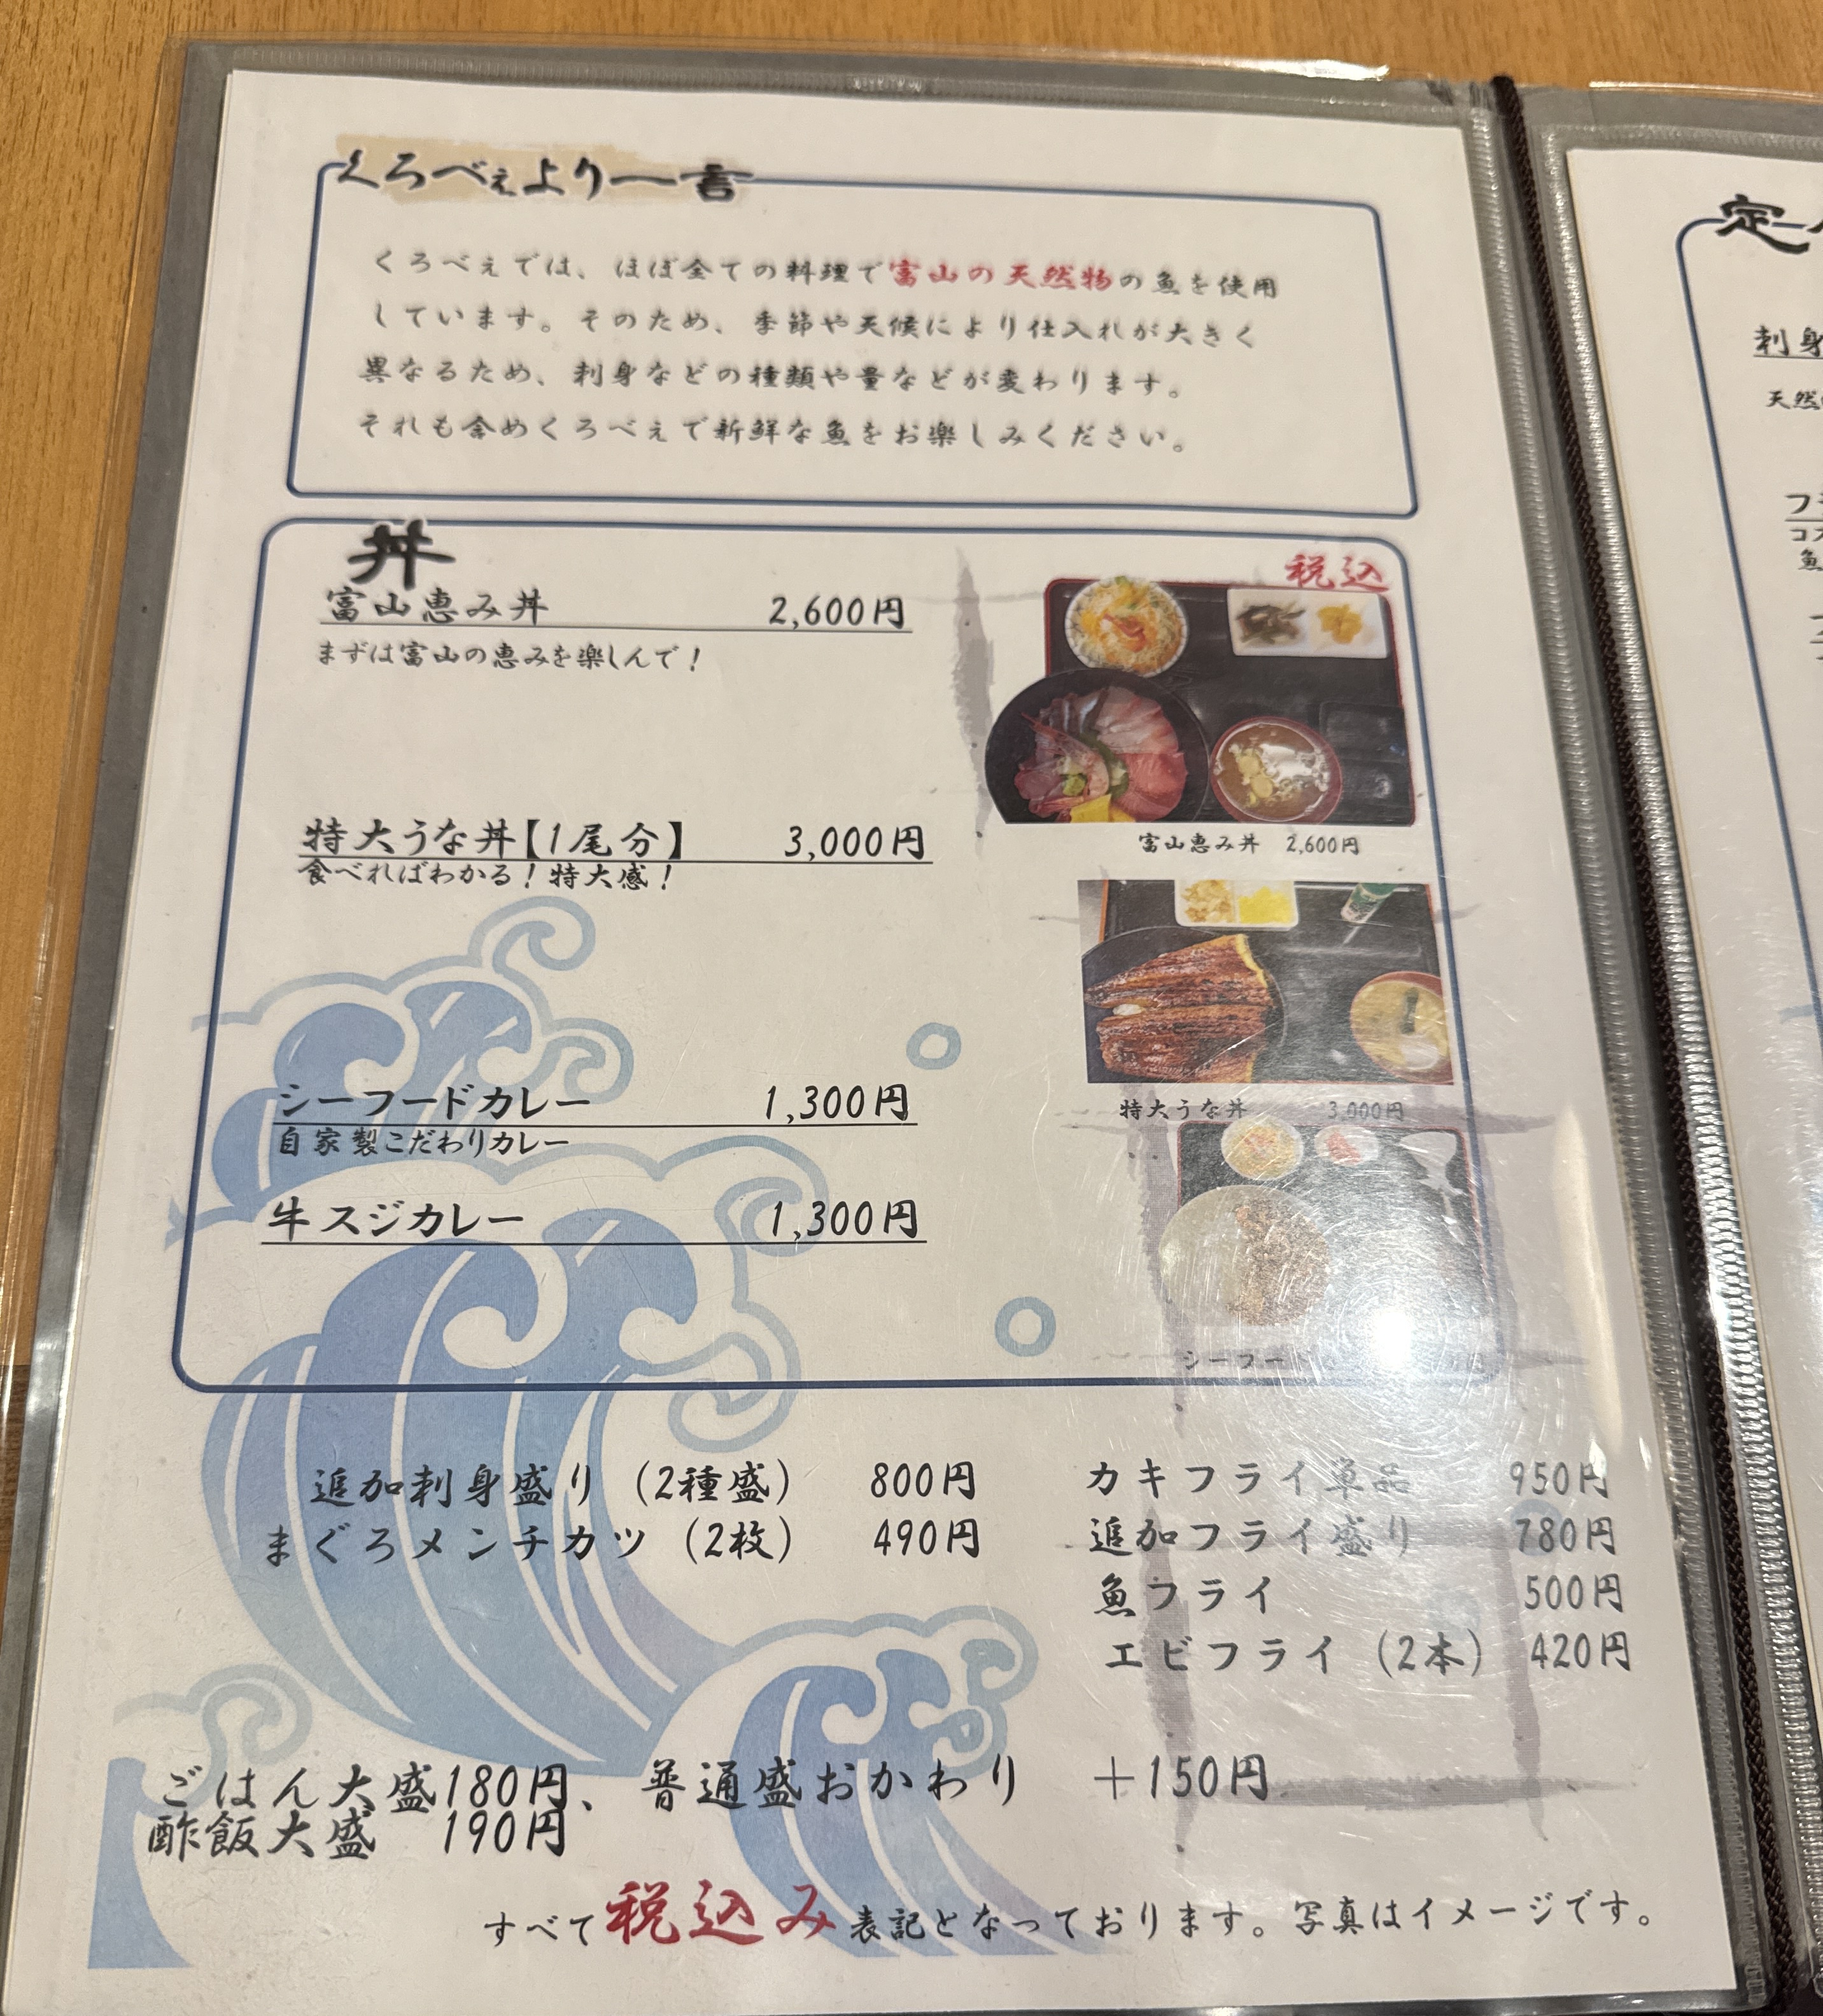 くろべぇより一言
くろべえでは、ほぼ全ての料理で富山の天然物の魚を使用
しています。そのため、季節や天候により仕入れが大きく
異なるため、刺身などの種類や量などが変わります。
それも含めくろべえで新鮮な魚をお楽しみください。
丼
税込
富山恵み丼 2,600円
まずは富山の恵みを楽しんで！
富山恵み丼 2,600円
特大うな丼【1尾分】 3,000円
食べればわかる！特大感！
特大うな丼 3,000円
シーフードカレー 1,300円
自家製こだわりカレー
牛スジカレー 1,300円
シーフード
追加刺身盛り（2種盛） 800円
まぐろメンチカツ（2枚） 490円
カキフライ単品 950円
追加フライ盛り 780円
魚フライ 500円
エビフライ（2本） 420円
ごはん大盛180円、普通盛おかわり ＋150円
酢飯大盛 190円
すべて税込み表記となっております。写真はイメージです。
刺身
天然